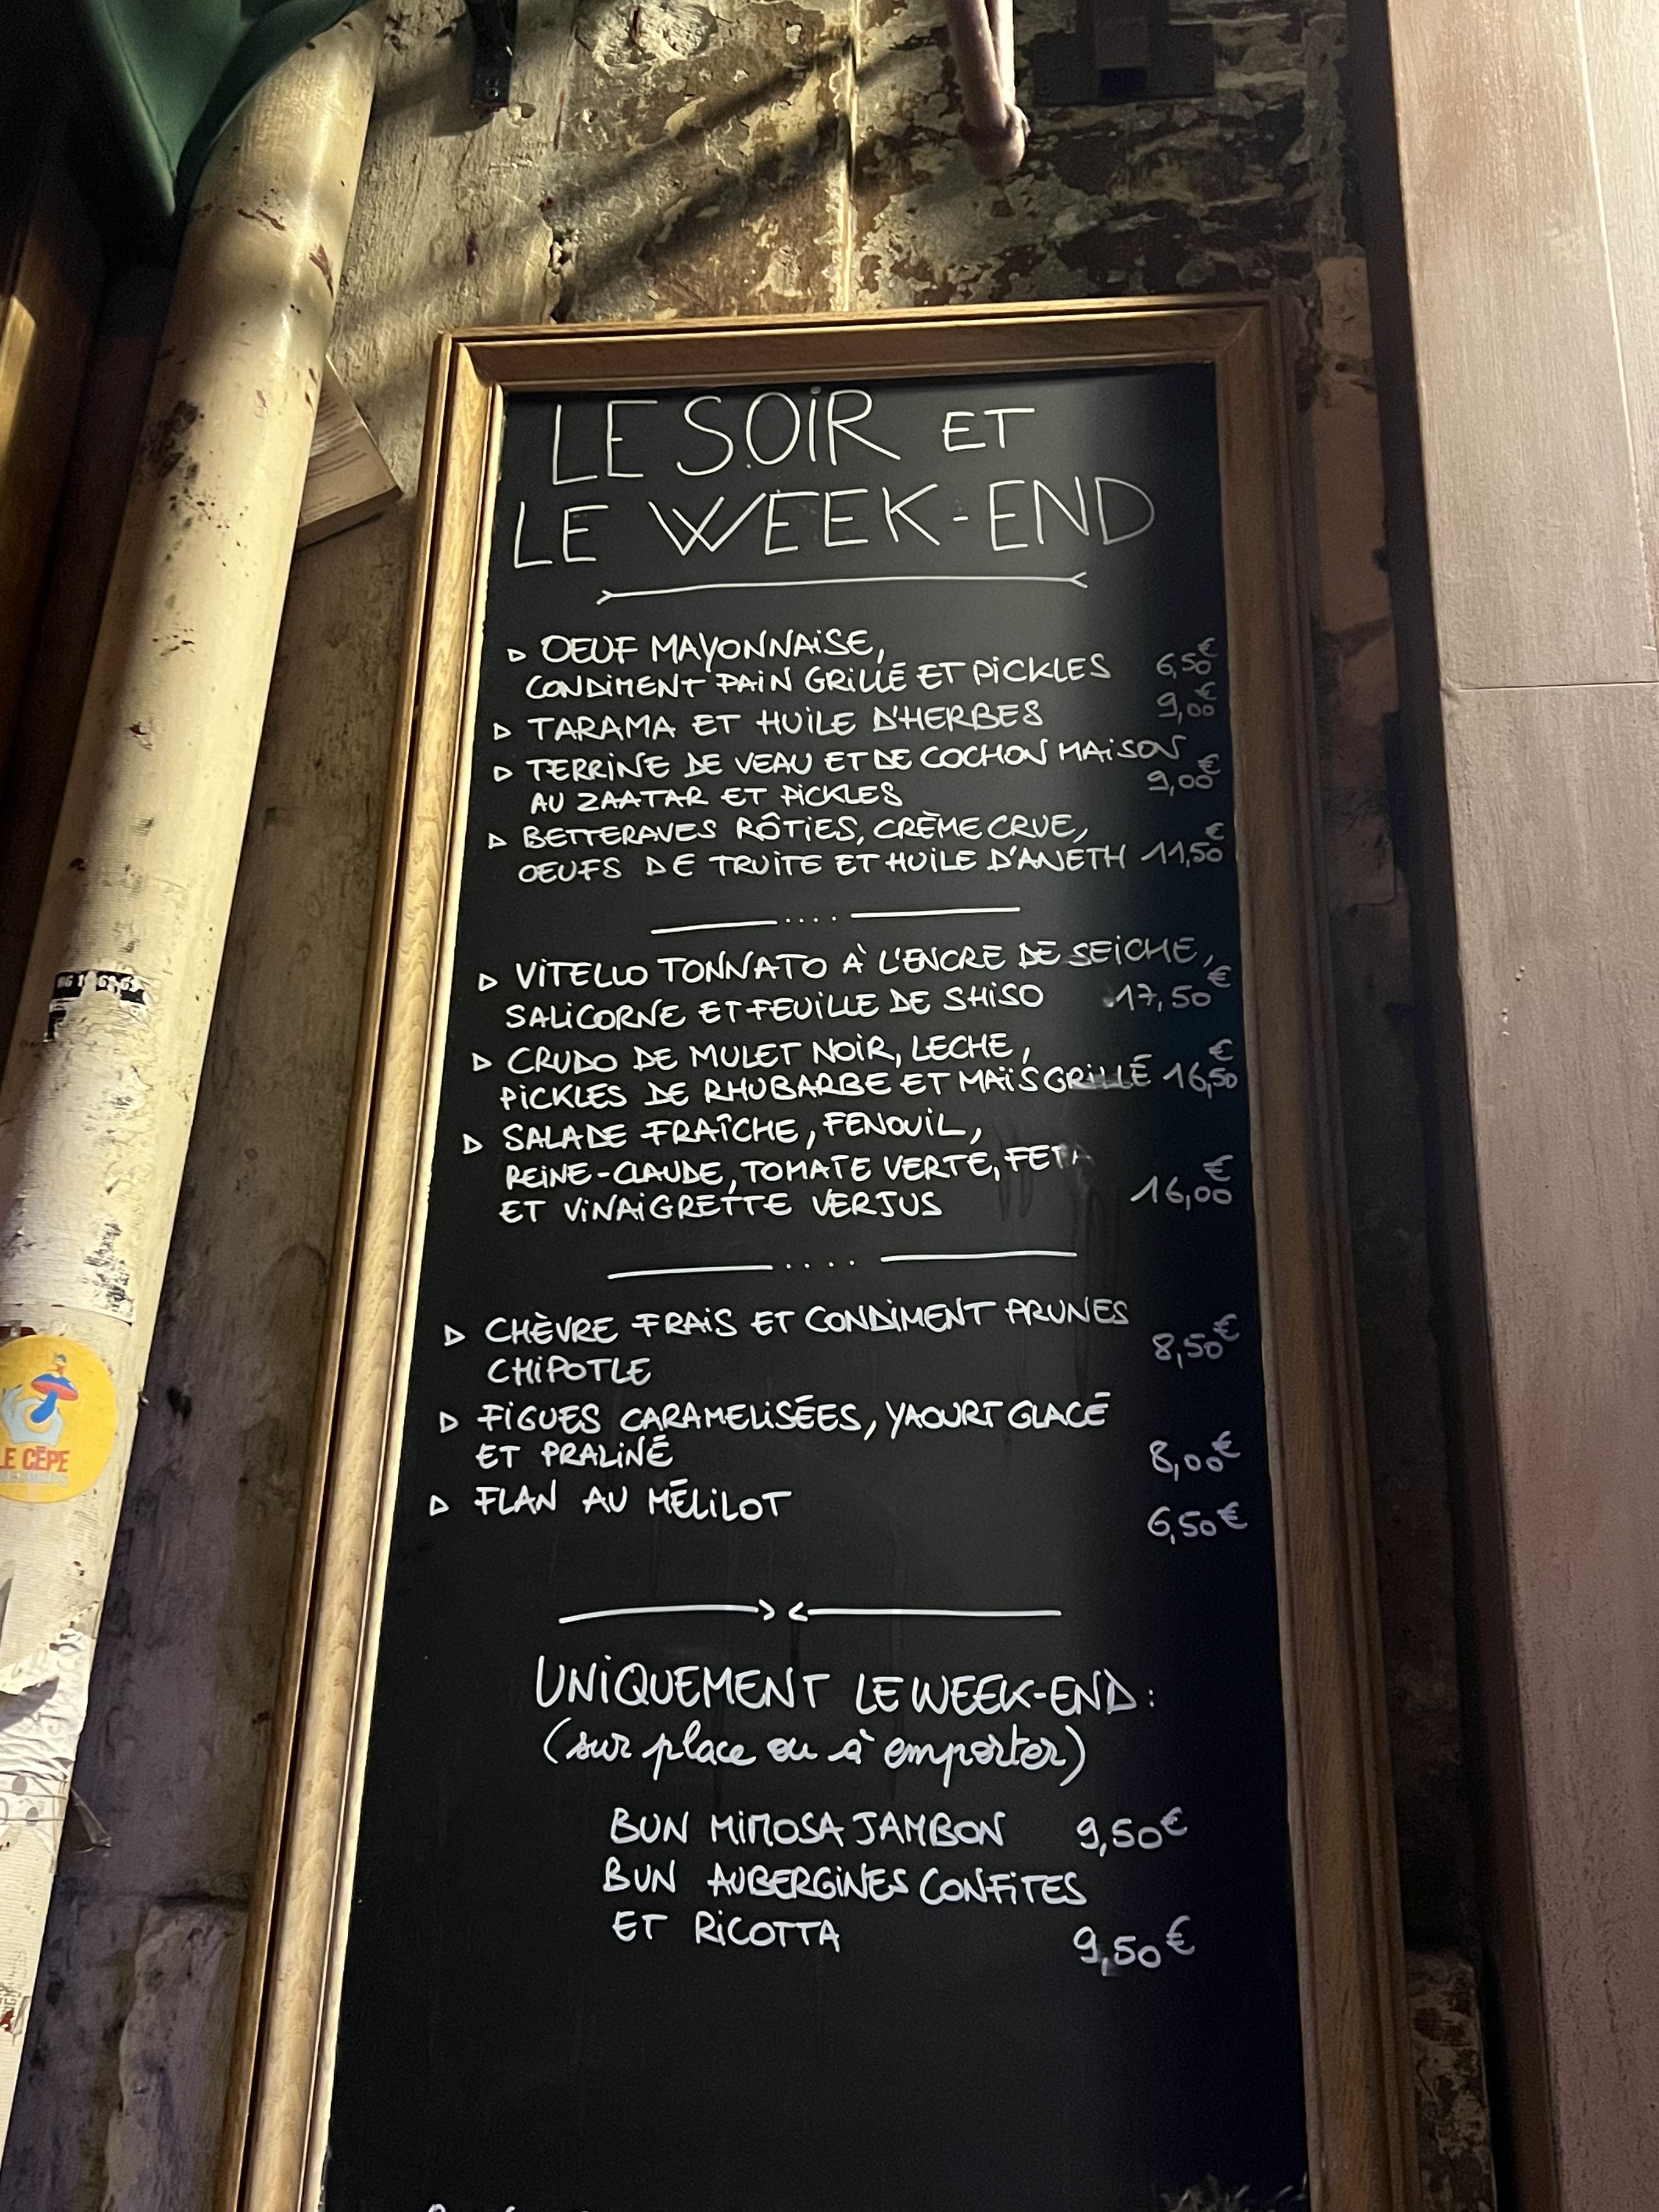 LE SOIR ET
LE WEEK-END
OEUF MAYONNAISE,
CONDIMENT PAIN GRILLÉ ET PICKLES 6,50€
TARAMA ET HUILE D'HERBES 9,00€
TERRINE DE VEAU ET DE COCHON MAISON
AU ZAATAR ET PICKLES 9,00€
BETTERAVES RÔTIES, CRÈME CRUE,
OEUFS DE TRUITE ET HUILE D'ANETH 11,50€
VITELLO TONNATO À L'ENCRE DE SEICHE,
SALICORNE ET FEUILLE DE SHISO 17,50€
CRUDO DE MULET NOIR, LECHE,
PICKLES DE RHUBARBE ET MAÏS GRILLÉ 16,50€
SALADE FRAÎCHE, FENOUIL,
REINE-CLAUDE, TOMATE VERTE, FETA
ET VINAIGRETTE VERJUS 16,00€
CHÈVRE FRAIS ET CONDIMENT PRUNES
CHIPOTLE 8,50€
FIGUES CARAMELISÉES, YAOURT GLACÉ
ET PRALINÉ 8,00€
FLAN AU MÉLILOT 6,50€
UNIQUEMENT LE WEEK-END:
(sur place ou à emporter)
BUN MIMOSA JAMBON 9,50€
BUN AUBERGINES CONFITES
ET RICOTTA 9,50€
LE CÈPE